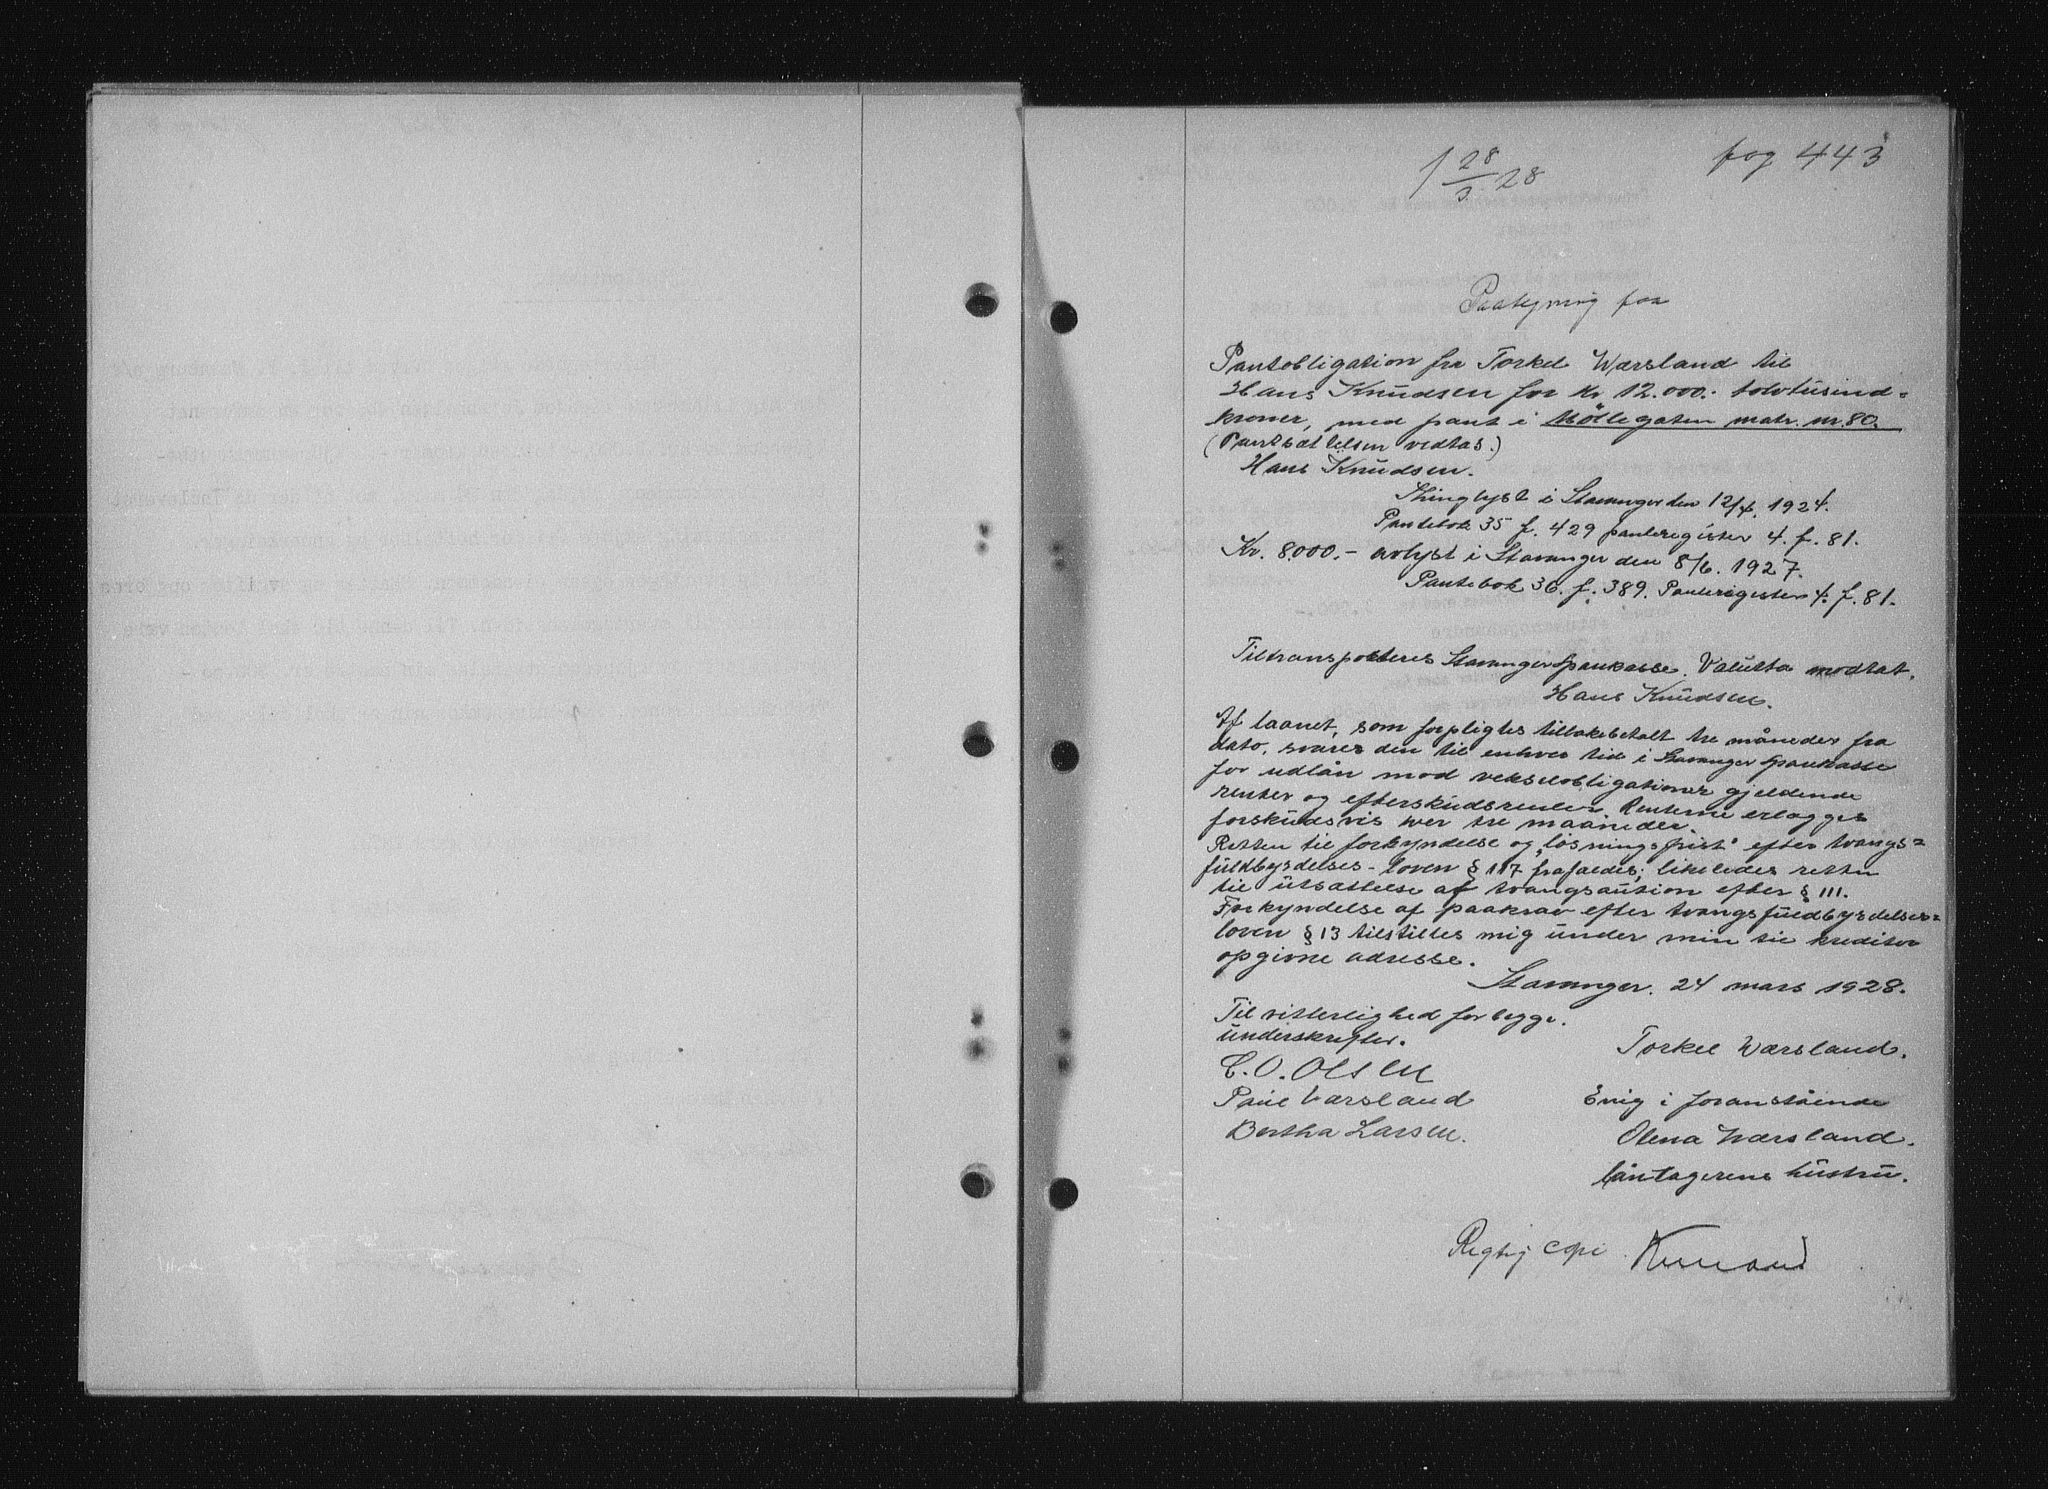 1 28/3 28
pag 443
Paategning paa
Pantobligation fra Torkel Wærsland til
Hans Knudsen for Kr 12.000.- tolvtusind-
kroner, med pant i Möllegaten matr. nr. 80.
(Pantsættelsen vedtas.)
Hans Knudsen.
Thinglyst i Stavanger den 12/4. 1924.
Pantebok 35 f. 429 panteregister 4. f. 81.
Kr. 8000.- avlyst i Stavanger den 8/6. 1927.
Pantebok 36. f. 389. Panteregister 4. f. 81.
Tiltransporteres Stavanger Sparekasse. Valutta modtat.
Hans Knudsen.
Af laanet, som forpligtes tilbakebetalt tre måneder fra
dato, svares den til enhver tid i Stavanger Sparekasse
for udlån mod vekselobligationer gjeldende
renter og efterskudsrenter. Renterne erlægges
forskudsvis hver tre maaneder.
Retten til forkyndelse og „løsningsfrist" efter tvangs-
fuldbyrdelses-loven § 117 frafaldes; likeledes retten
til utsættelse af tvangsaution efter § 111.
Forkyndelse af paakrav efter tvangsfuldbyrdelses-
loven § 13 tilstilles mig under min til kreditor
opgivne adresse.
Stavanger. 24 mars 1928.
Til vitterlighed for begge.
underskrifter.
Torkel Wærsland.
C. O. Olsen
Paul Værsland
Enig i foranstående
Bertha Larsen.
Olena Wærsland.
låntagerens hustru.
Regtig copi